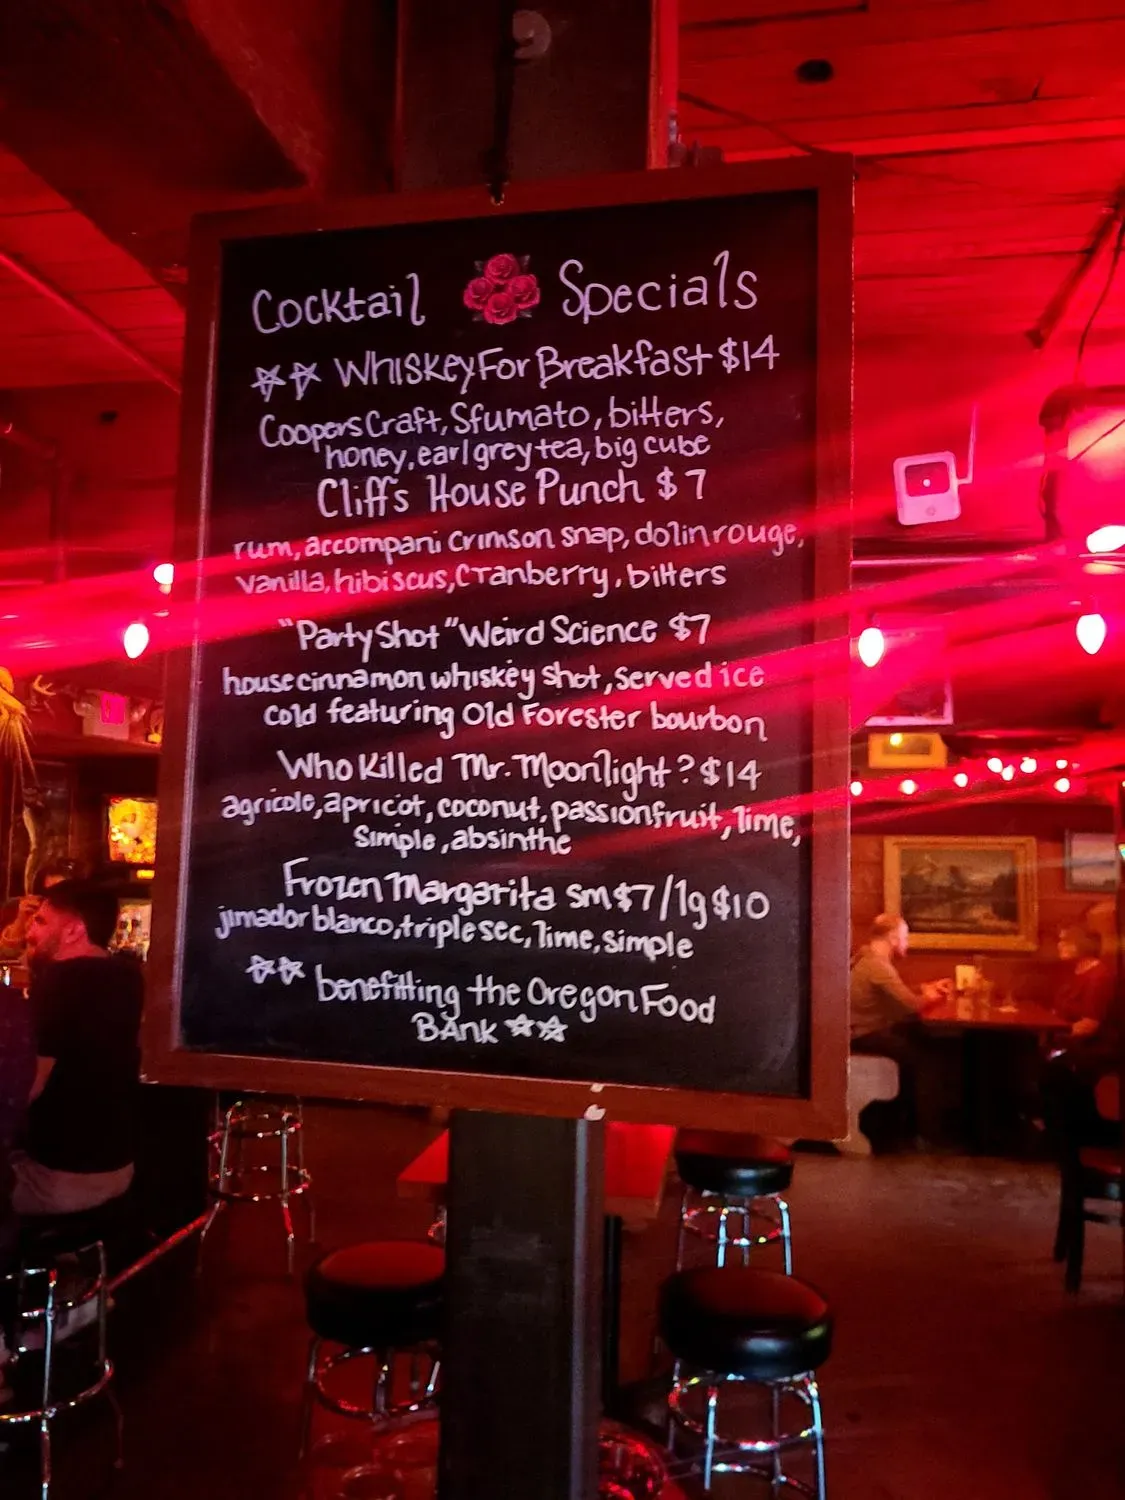 Cocktail Specials
☆☆ Whiskey For Breakfast $14
Coopers Craft, Sfumato, bitters,
honey, earl grey tea, big cube
Cliffs House Punch $7
rum, accompani crimson snap, dolin rouge,
vanilla, hibiscus, cranberry, bitters
"Party Shot" Weird Science $7
house cinnamon whiskey shot, served ice
cold featuring Old Forester bourbon
Who Killed Mr. Moonlight? $14
agricole, apricot, coconut, passionfruit, lime,
simple, absinthe
Frozen Margarita sm $7/lg $10
jimador blanco, triple sec, lime, simple
☆☆ benefitting the Oregon Food
BAnk ☆☆